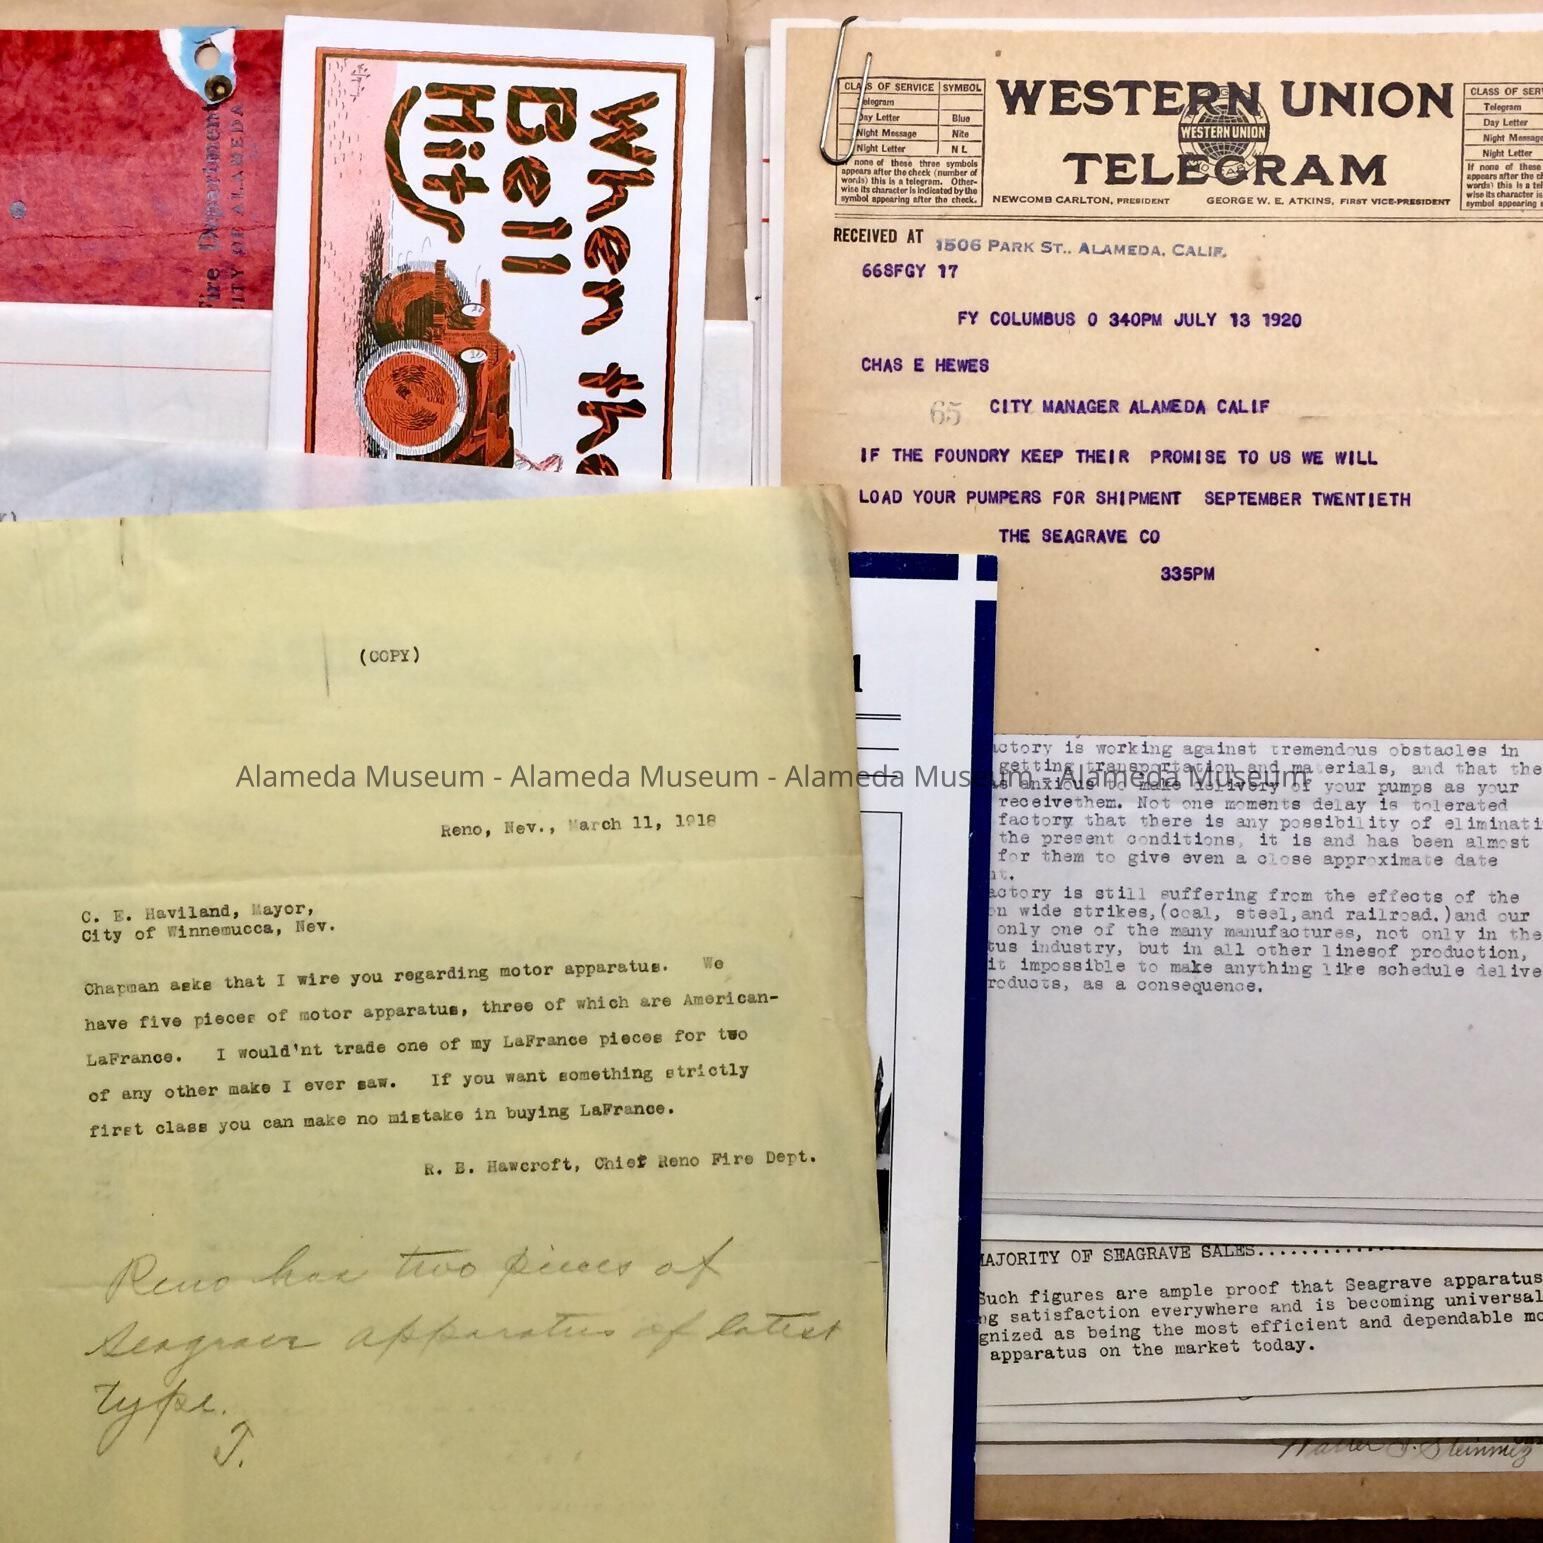 Fire Department
CITY OF ALAMEDA
When the
Bell
Hits
CLASS OF SERVICE SYMBOL
Telegram
Day Letter Blue
Night Message Nite
Night Letter N L
If none of these three symbols
appears after the check (number of
words) this is a telegram. Other-
wise its character is indicated by the
symbol appearing after the check.
WESTERN UNION
WESTERN UNION
TELEGRAM
NEWCOMB CARLTON, PRESIDENT GEORGE W. E. ATKINS, FIRST VICE-PRESIDENT
CLASS OF SER
Telegram
Day Letter
Night Message
Night Letter
If none of these
appears after the ch
words) this is a tel
wise its character is
symbol appearing a
RECEIVED AT 1506 PARK ST., ALAMEDA, CALIF.
66SFGY 17
FY COLUMBUS O 340PM JULY 13 1920
CHAS E HEWES
65 CITY MANAGER ALAMEDA CALIF
IF THE FOUNDRY KEEP THEIR PROMISE TO US WE WILL
LOAD YOUR PUMPERS FOR SHIPMENT SEPTEMBER TWENTIETH
THE SEAGRAVE CO
335PM
(COPY)
Alameda Museum - Alameda Museum - Alameda Museum - Alameda Museum
Reno, Nev., March 11, 1918
C. E. Haviland, Mayor,
City of Winnemucca, Nev.
Chapman asks that I wire you regarding motor apparatus. We
have five pieces of motor apparatus, three of which are American-
LaFrance. I would'nt trade one of my LaFrance pieces for two
of any other make I ever saw. If you want something strictly
first class you can make no mistake in buying LaFrance.
R. E. Hawcroft, Chief Reno Fire Dept.
Reno has two pieces of
Seagrave apparatus of latest
type.
T.
actory is working against tremendous obstacles in
getting transportation and materials, and that the
is anxious to make delivery of your pumps as your
receivethem. Not one moments delay is tolerated
factory that there is any possibility of eliminati
the present conditions, it is and has been almost
for them to give even a close approximate date
nt.
actory is still suffering from the effects of the
on wide strikes,(coal, steel,and railroad.)and our
only one of the many manufactures, not only in the
tus industry, but in all other linesof production,
it impossible to make anything like schedule delive
roducts, as a consequence.
MAJORITY OF SEAGRAVE SALES..........
Such figures are ample proof that Seagrave apparatus
ng satisfaction everywhere and is becoming universal
gnized as being the most efficient and dependable mo
apparatus on the market today.
Walter J. Steinmetz